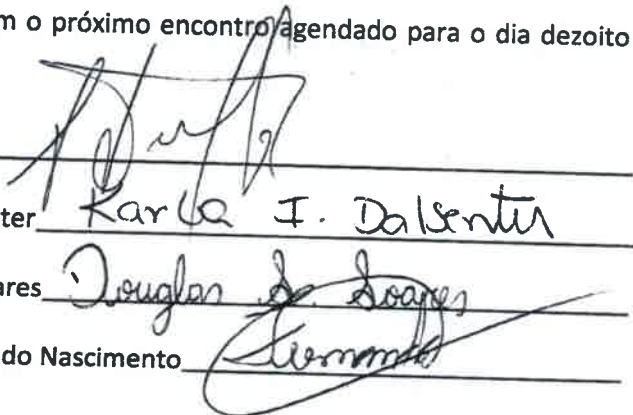 m o próximo encontro agendado para o dia dezoito
ter Karla I. Dalsenter
ares Douglas S. Soares
do Nascimento